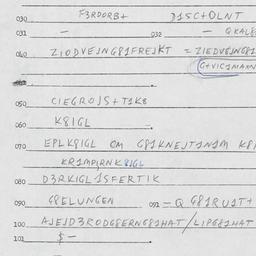 030 F3RDORB+ D15C+OLNT
031 — 032 — QKAL8
040 ZIODVEJNG81FREJKT = ZIEDVEJNG81
G+VIC1MAXN
050 CIEGROJS+T1K8
060 K8IGL
070 EPLK8IGL OM G81KNEJT1N1M K8
KR1MPIRNK8IGL
080 D3RKIGL1SFERTIK
090 G8ELUNGEN 091 — Q G81RU1T+
100 AJEJD3RODG8ERNG81HAT/LIPG81HAT
101 $ —